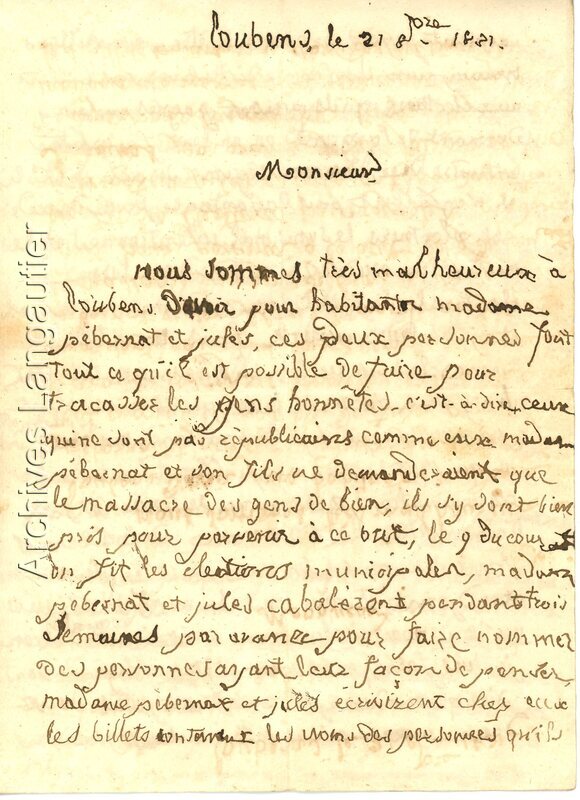 Loubens, le 21 8bre 1881.
Monsieur
nous sommes très malheureux à
Loubens d'avoir pour habitants madame
pébernat et jules, ces deux personnes font
tout ce qu'il est possible de faire pour
tracasser les gens honnêtes c'est-à-dire ceux
qui ne sont pas républicains comme eux madame
pébernat et son fils ne demanderaient que
le massacre des gens de bien, ils s'y sont bien
pris pour parvenir à ce but, le 9 du court
on fit les élections municipales, madame
pébernat et jules cabalèrent pendant trois
semaines par avance pour faire nommer
des personnes ayant leur façon de penser,
madame pébernat et jules écrivirent chez eux
les billets contenant les noms des personnes qu'ils
Archives Langautier